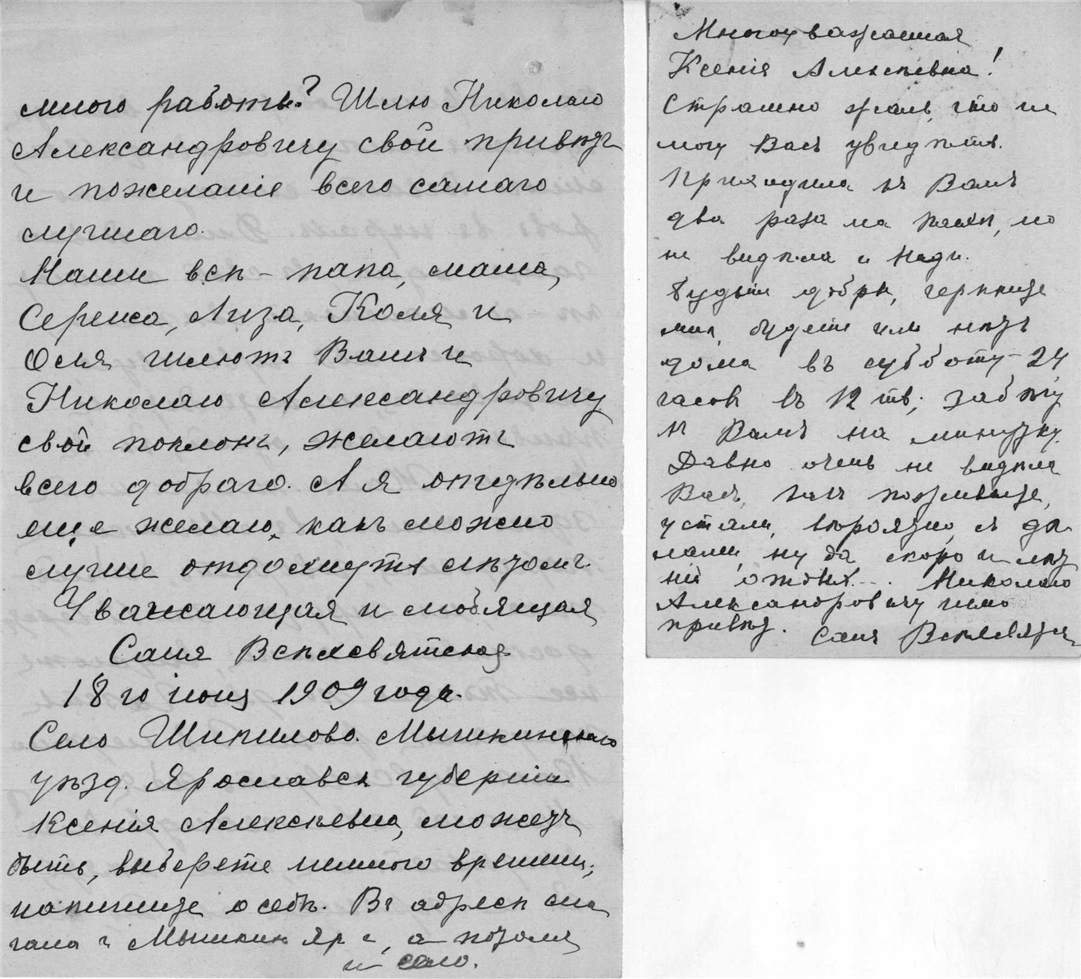 много работы? Шлю Николаю
Александровичу свой привѣтъ
и пожеланіе всего самаго
лучшаго.
Наши всѣ – папа, мама,
Сережа, Лиза, Коля и
Оля шлютъ Вамъ и
Николаю Александровичу
свой поклонъ, желаютъ
всего добраго. А я отдѣльно
еще желаю, какъ можно
лучше отдохнуть лѣтомъ
Уважающая и любящая
Саня Всѣхсвятская
18го іюня 1909 года.
Село Шипилово Мышкинскаго
уѣзд. Ярославск губерніи
Ксенія Алексѣевна, можетъ
быть, выберете немного времени,
напишите о себѣ. Въ адресѣ
Мышкин Яр г, а
и село.
Многоуважаемая
Ксенія Алексѣевна!
Страшно жаль, что не
могу Васъ увидѣть.
Приходила къ Вамъ
два раза на Пасхѣ, но
не видѣла и Нади.
Будьте добры, черкните
мнѣ, будете или нѣтъ
дома въ субботу 24
часов въ 12 ; забѣгу
къ Вамъ на минутку.
Давно очень не видѣла
Васъ, какъ поживаете,
устали, вѣроятно съ дѣ
лами, ну да скоро и лѣт
ній отдыхъ... Николаю
Александровичу шлю
привѣт. Саня Всѣхсвятская